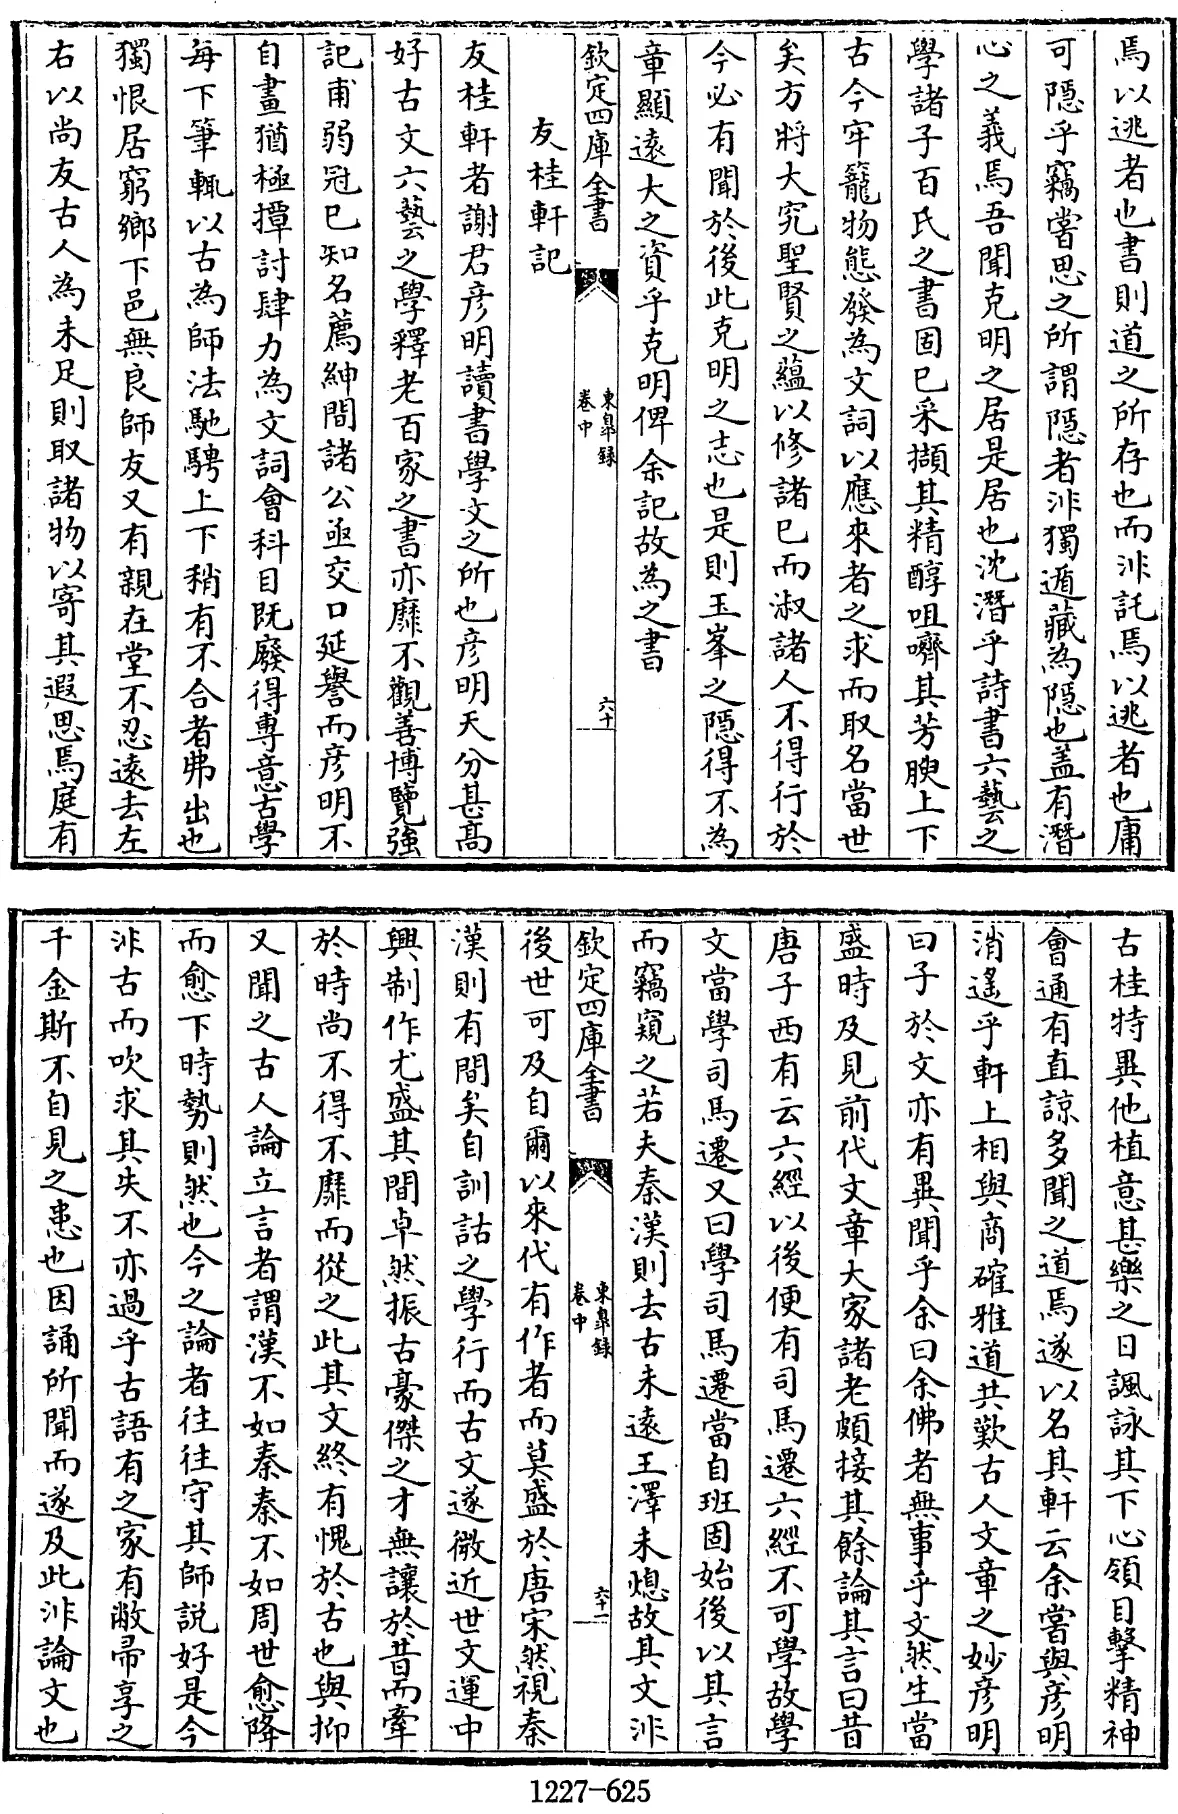 焉以逃者也書則道之所存也而非託焉以逃者也庸
可隱乎竊嘗思之所謂隱者非獨遁藏為隱也蓋有潛
心之義焉吾聞克明之居是居也沈潛乎詩書六藝之
學諸子百氏之書固已采擷其精醇咀嚌其芳腴上下
古今牢籠物態發為文詞以應來者之求而取名當世
矣方將大究聖賢之藴以修諸已而淑諸人不得行於
今必有聞於後此克明之志也是則玉峯之隱得不為
章顯遠大之資乎克明俾余記故為之書
欽定四庫全書
東臯録
卷中
六十
友桂軒記
友桂軒者謝君彦明讀書學文之所也彦明天分甚髙
好古文六藝之學釋老百家之書亦靡不觀善博覽強
記甫弱冠已知名薦紳間諸公亟交口延譽而彦明不
自畫猶極撢討肆力為文詞會科目既廢得專意古學
每下筆輒以古為師法馳騁上下稍有不合者弗出也
獨恨居窮鄉下邑無良師友又有親在堂不忍遠去左
右以尚友古人為未足則取諸物以寄其遐思焉庭有
古桂特異他植意甚樂之日諷詠其下心領目擊精神
會通有直諒多聞之道焉遂以名其軒云余嘗與彦明
消遥乎軒上相與商確雅道共歎古人文章之妙彦明
曰子於文亦有異聞乎余曰余佛者無事乎文然生當
盛時及見前代文章大家諸老頗接其餘論其言曰昔
唐子西有云六經以後便有司馬遷六經不可學故學
文當學司馬遷又曰學司馬遷當自班固始後以其言
而竊窺之若夫秦漢則去古未遠王澤未熄故其文非
欽定四庫全書
東臯録
卷中
六十一
後世可及自爾以來代有作者而莫盛於唐宋然視秦
漢則有間矣自訓詁之學行而古文遂微近世文運中
興制作尤盛其間卓然振古豪傑之才無讓於昔而牽
於時尚不得不靡而從之此其文終有愧於古也與抑
又聞之古人論立言者謂漢不如秦秦不如周世愈降
而愈下時勢則然也今之論者往往守其師説好是今
非古而吹求其失不亦過乎古語有之家有敝帚享之
千金斯不自見之患也因誦所聞而遂及此非論文也
1227-625